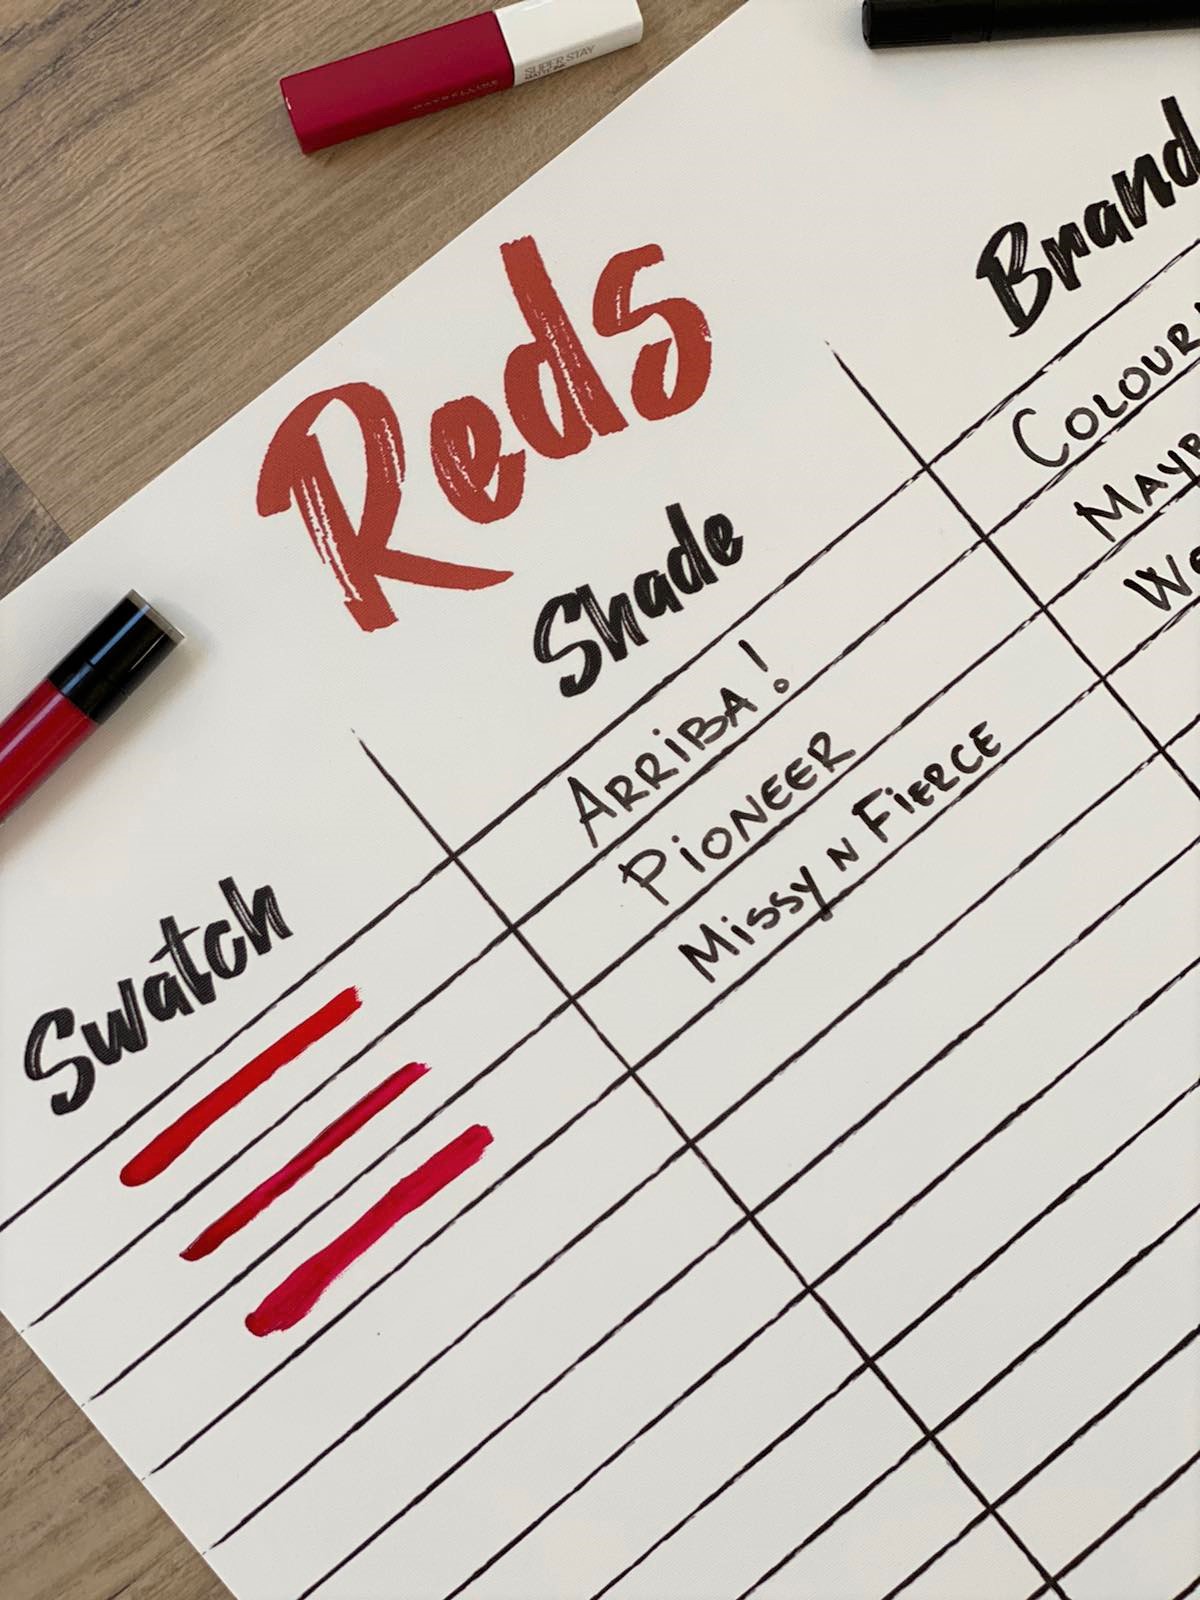 SUPER STAY
MATTE INK
MAYBELLINE
Reds
Swatch Shade Brand
ARRIBA! COLOUR
PIONEER MAYB
MISSY N FIERCE WE